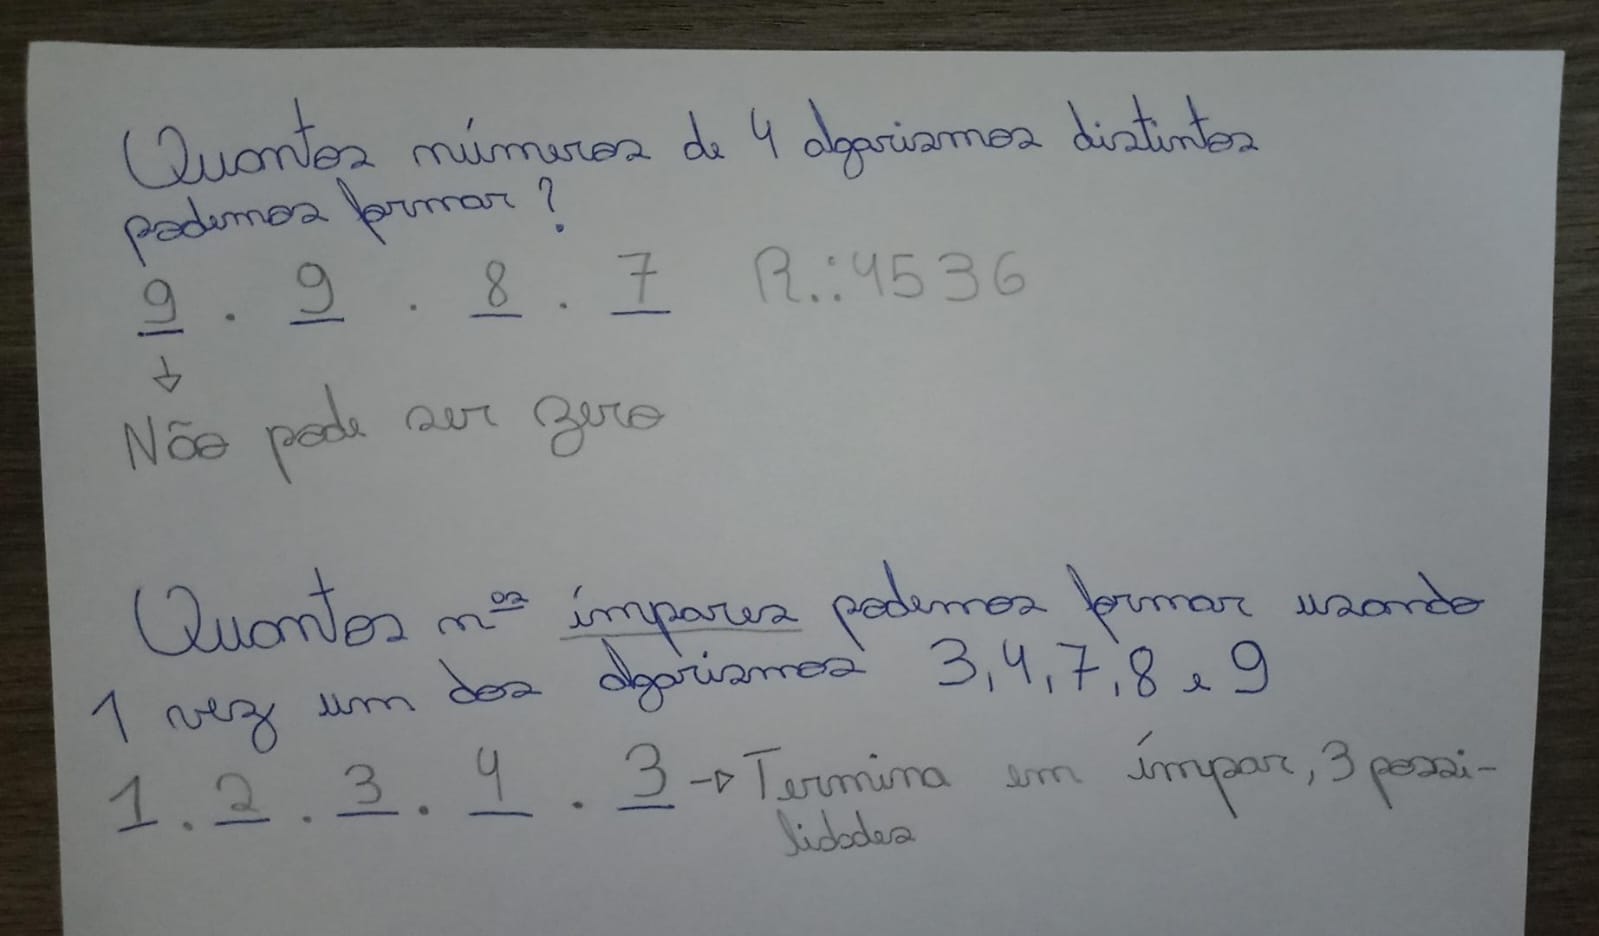 Quantos números de 4 algarismos distintos
podemos formar?
9 . 9 . 8 . 7 R.: 4536
↓
Não pode ser zero
Quantos nos ímpares podemos formar usando
1 vez um dos algarismos 3, 4, 7, 8 e 9
1 . 2 . 3 . 4 . 3 → Termina em ímpar, 3 possi-
lidades